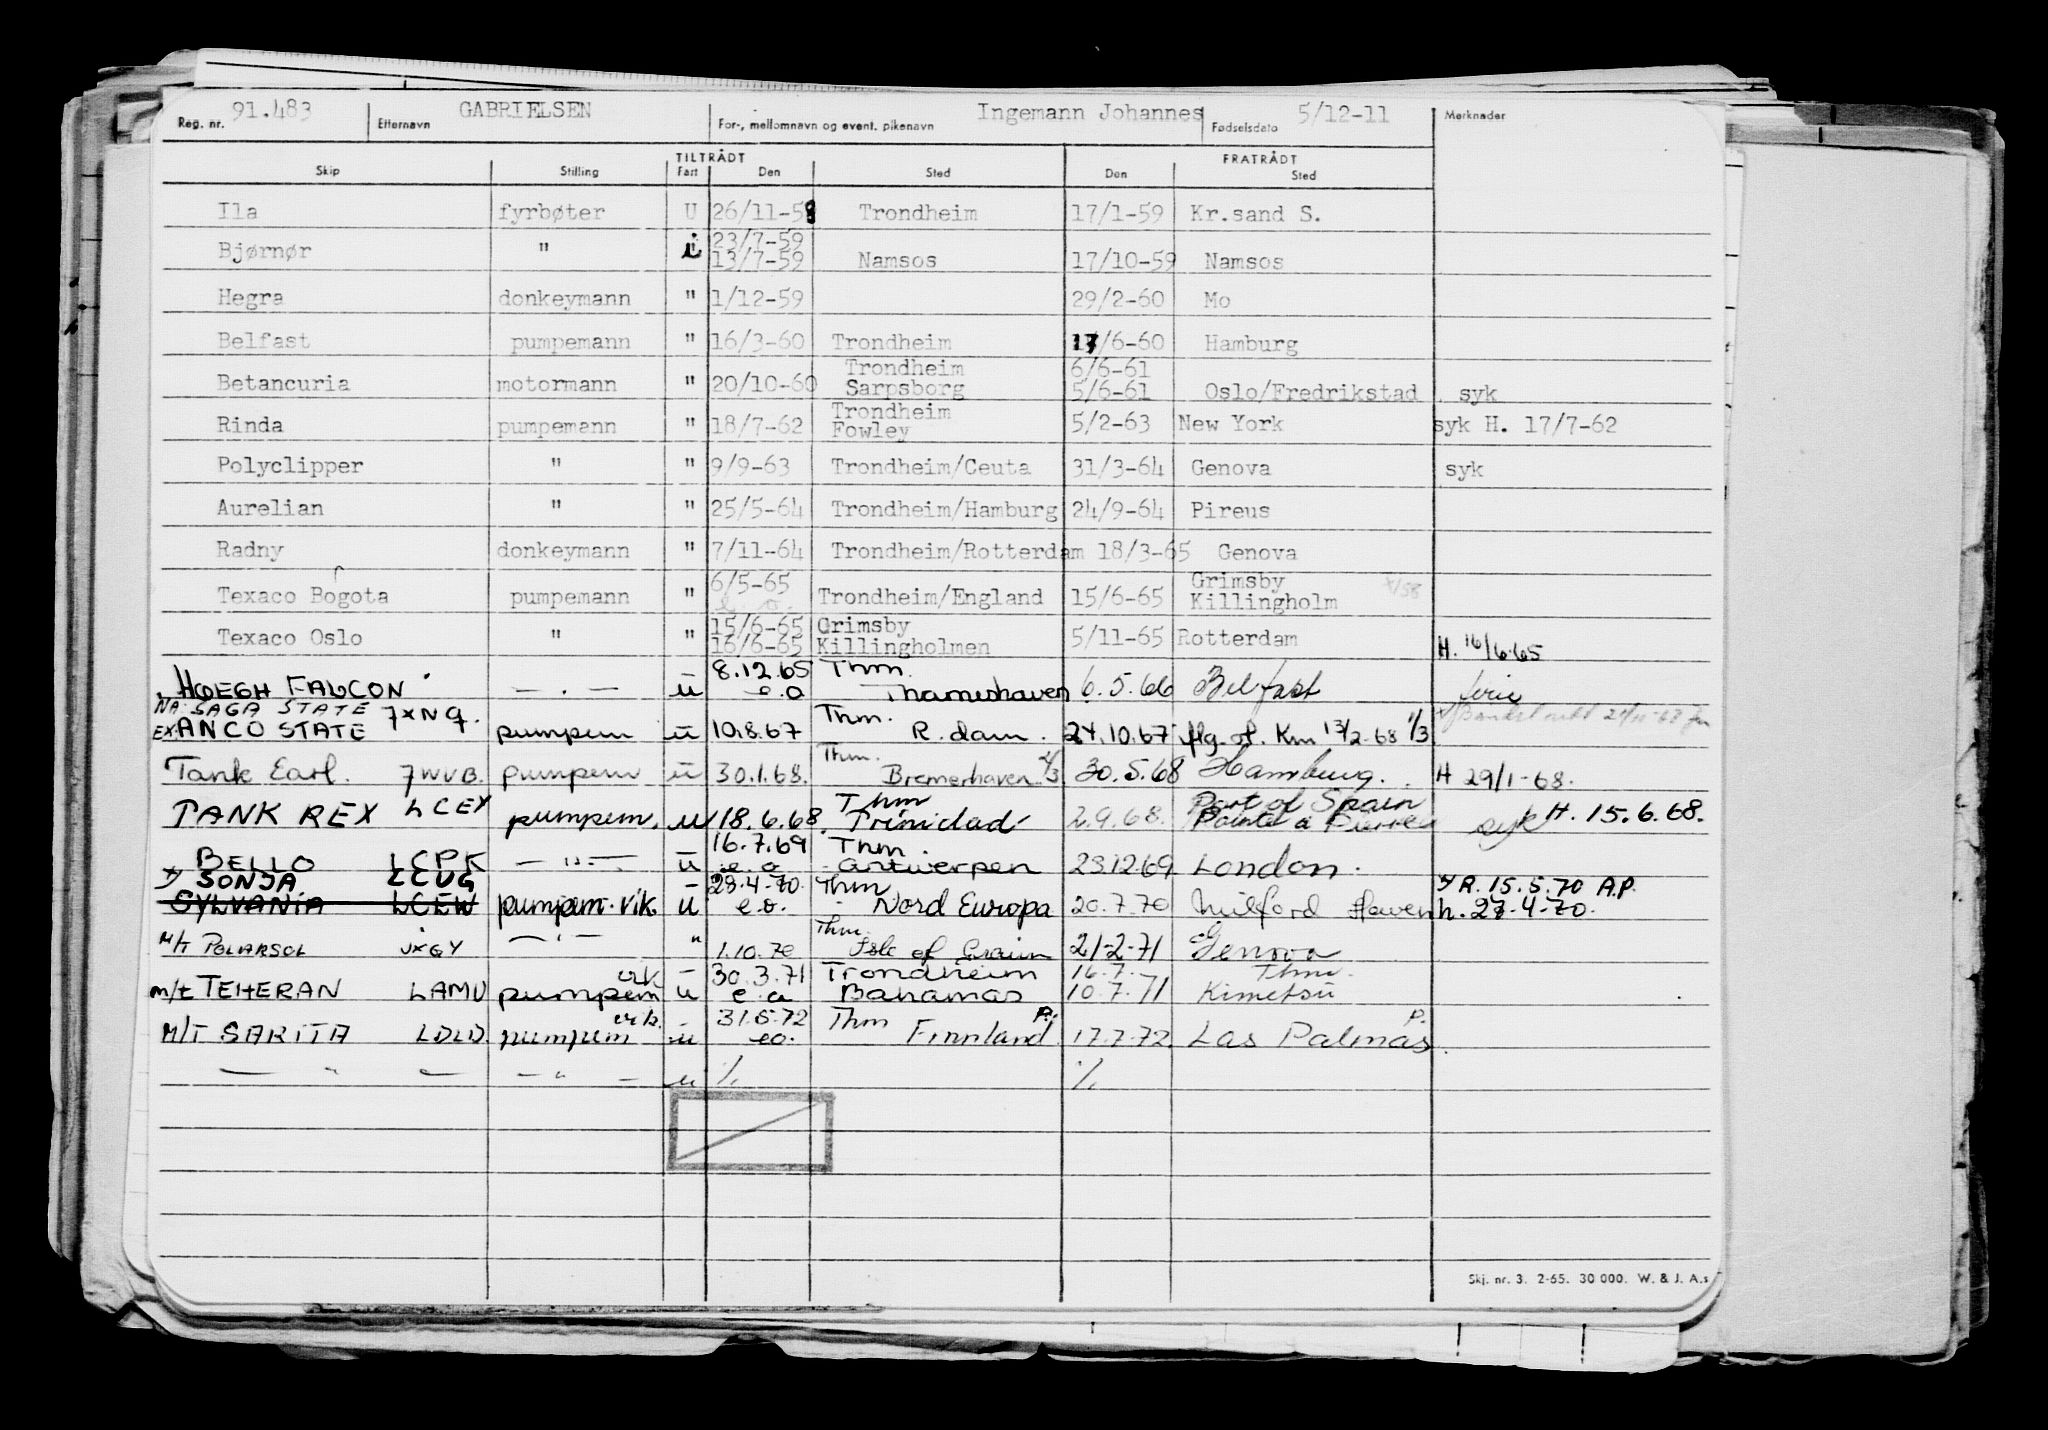 Reg. nr. 91.483 Etternavn GABRIELSEN For-, mellomnavn og event. pikenavn Ingemann Johannes Fødselsdato 5/12-11 Merknader
TILTRÅDT FRATRÅDT
Skip Stilling Fart Den Sted Den Sted
Ila fyrbøter U 26/11-58 Trondheim 17/1-59 Kr.sand S.
23/7-59
Bjørnør " i 13/7-59 Namsos 17/10-59 Namsos
Hegra donkeymann " 1/12-59 29/2-60 Mo
Belfast pumpemann " 16/3-60 Trondheim 17/6-60 Hamburg
Trondheim 6/6-61
Betancuria motormann " 20/10-60 Sarpsborg 5/6-61 Oslo/Fredrikstad syk
Trondheim
Rinda pumpemann " 18/7-62 Fowley 5/2-63 New York syk H. 17/7-62
Polyclipper " " 9/9-63 Trondheim/Ceuta 31/3-64 Genova syk
Aurelian " " 25/5-64 Trondheim/Hamburg 24/9-64 Pireus
Radny donkeymann " 7/11-64 Trondheim/Rotterdam 18/3-65 Genova
6/5-65 Grimsby
Texaco Bogota pumpemann " e. o. Trondheim/England 15/6-65 Killingholm
15/6-65 Grimsby
Texaco Oslo " " 16/6-65 Killingholmen 5/11-65 Rotterdam H. 16/6-65
8.12.65 Thm.
HØEGH FALCON — . — u e.o Thameshaven 6.5.66 Belfast ferie
NA: SAGA STATE 7XNQ. Thm.
EX: ANCO STATE pumpem u 10.8.67 R.dam. 24.10.67 flg. of. Km 13/2-68 1/3
Thm.
Tank Earl. 7WVB. pumpem u 30.1.68. Bremerhaven 30.5.68 Hamburg. H 29/1-68.
Thm Port of Spain
TANK REX LCEY pumpem. u 18.6.68. Trinidad 2.9.68. Pointe a Pierre syk H. 15.6.68.
16.7.69 Thm.
BELLO LCPK — " — u e.o Antwerpen 23.12.69 London.
x) SONJA LCUG 28.4-70. Thm x) R. 15.5.70 A.P.
SYLVANIA LCEW pumpem. vik. u e.o. Nord Europa 20.7.70 Milford Haven h. 27-4-70.
Thm.
M/T POLARSOL JXGY — " — " 1.10.70 Isle of Grain 21-2-71 Genova
vik 30.3.71 Trondheim 16.7. Thm.
m/t TEHERAN LAMU pumpem u e.o Bahamas 10.7.71 Kimetsu
vik. 31.5.72 Thm P. P.
M/T SARITA LDLD. pumpem u eo. Finnland 17.7.72 Las Palmas.
— " — — " — u % %
Skj. nr. 3. 2-65. 30 000. W. & J. A.s